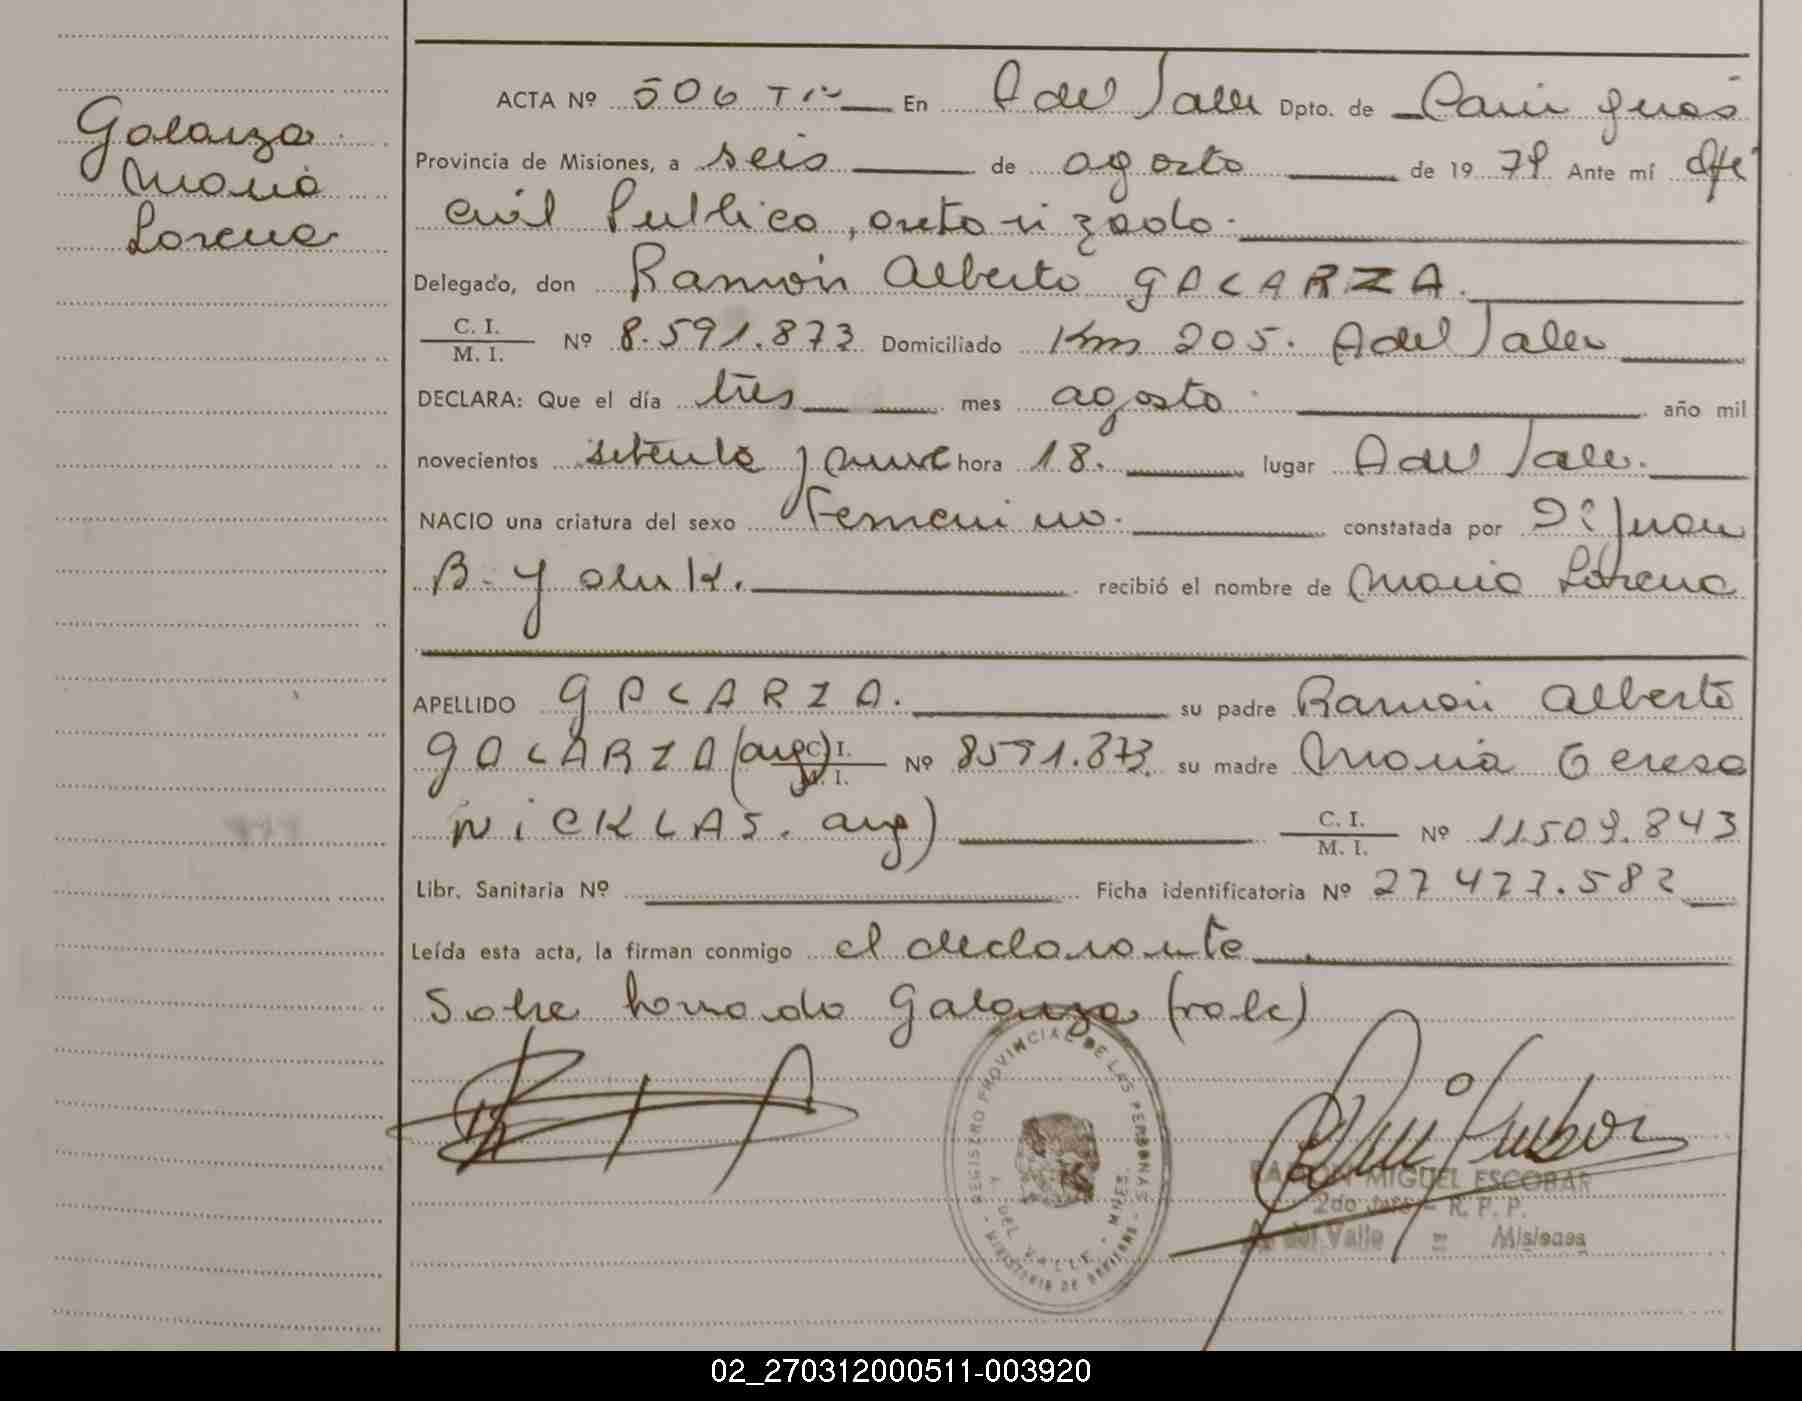 Galarza
Maria
Lorena
ACTA Nº 506 TIII En A del Valle Dpto. de Cainguás
Provincia de Misiones, a seis de agosto de 1979 Ante mí Ofc
civil Publico, autorizado.
Delegado, don Ramón Alberto GALARZA.
C. I. / M. I. Nº 8.591.873 Domiciliado Km 205. A del Valle
DECLARA: Que el día tres mes agosto año mil
novecientos setenta y nueve hora 18. lugar A del Valle.
NACIO una criatura del sexo Femenino. constatada por Dr Juan
B. Yaluk. recibió el nombre de Maria Lorena
APELLIDO GALARZA. su padre Ramón Alberto
GALARZA (arg) C. I. / M. I. Nº 8591.873 su madre Maria Teresa
NICKLAS. arg) C. I. / M. I. Nº 11509.843
Libr. Sanitaria Nº Ficha identificatoria Nº 27 477.582
Leída esta acta, la firman conmigo el declarante
Sobre borrado Galarza (vale)
REGISTRO PROVINCIAL DE LAS PERSONAS
A. DEL VALLE - MNES.
RAMON MIGUEL ESCOBAR
2do Jefe - R. P. P.
A. del Valle = Misiones
02_270312000511-003920